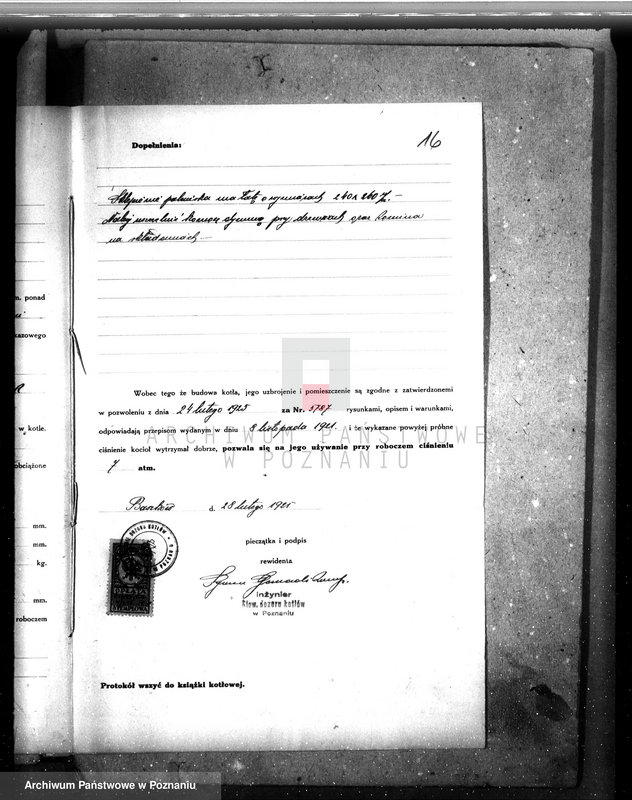 16
Dopełnienia:
Sklepienie paleniska ma łatę o wymiarach 240 x 260
na
Wobec tego że budowa kotła, jego uzbrojenie i pomieszczenie są zgodne z zatwierdzonemi
w pozwoleniu z dnia 24 lutego 1925 za Nr. 5787 rysunkami, opisem i warunkami,
odpowiadają przepisom wydanym w dniu 8 listopada 1921. i że wykazane powyżej próbne
ciśnienie kocioł wytrzymał dobrze, pozwala się na jego używanie przy roboczem ciśnieniu
7 atm.
d. 28 lutego 1925
pieczątka i podpis
rewidenta
Inżynier
Stow. dozoru kotłów
w Poznaniu
OPŁATA
Protokół wszyć do książki kotłowej.
m. ponad
kazowego
w kotle.
obciążone
mm.
mm.
kg.
mm.
roboczem
ARCHIWUM PAŃSTWOWE
W POZNANIU
Archiwum Państwowe w Poznaniu